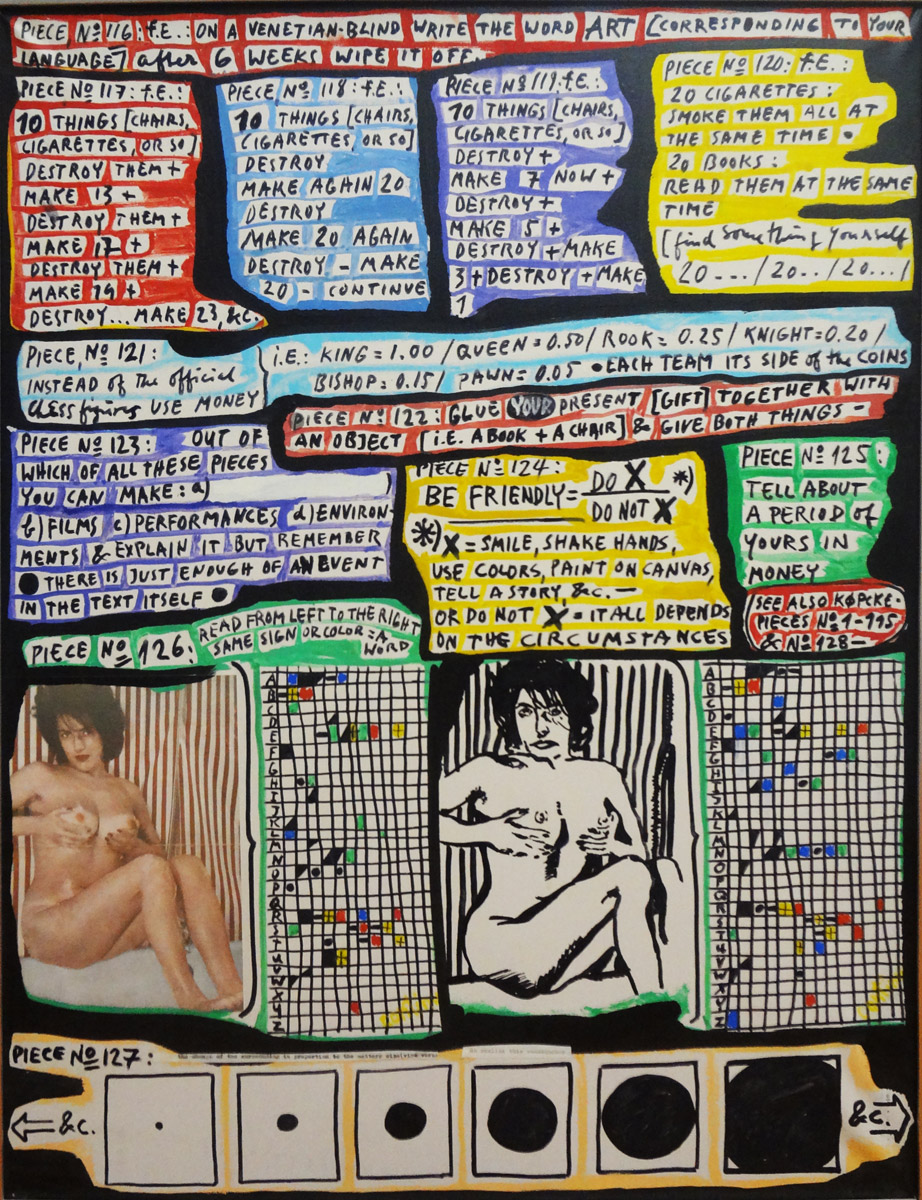 PIECE No 116: f.E.: ON A VENETIAN-BLIND WRITE THE WORD ART [CORRESPONDING TO YOUR
LANGUAGE] after 6 WEEKS WIPE IT OFF.
PIECE No 117: f.E.:
10 THINGS [CHAIRS,
CIGARETTES, OR SO]
DESTROY THEM +
MAKE 13 +
DESTROY THEM +
MAKE 17 +
DESTROY THEM +
MAKE 19 +
DESTROY... MAKE 23, &c.
PIECE No 118: f.E.:
10 THINGS [CHAIRS,
CIGARETTES, OR SO]
DESTROY
MAKE AGAIN 20
DESTROY
MAKE 20 AGAIN
DESTROY - MAKE
20 - CONTINUE
PIECE No 119: f.E.:
10 THINGS [CHAIRS,
CIGARETTES, OR SO]
DESTROY +
MAKE 7 NOW +
DESTROY +
MAKE 5 +
DESTROY + MAKE
3 + DESTROY + MAKE
1
PIECE No 120: f.E.:
20 CIGARETTES:
SMOKE THEM ALL AT
THE SAME TIME •
20 BOOKS:
READ THEM AT THE SAME
TIME
[find something yourself
20 --- / 20.. / 20... /
PIECE, No 121:
INSTEAD of the official
CHESS figures USE MONEY
i.E.: KING = 1.00 / QUEEN = 0.50 / ROOK = 0.25 / KNIGHT = 0.20 /
BISHOP = 0.15 / PAWN = 0.05 • EACH TEAM ITS SIDE of the COINS
PIECE No 122: GLUE YOUR PRESENT [GIFT] TOGETHER WITH
AN OBJECT [i.E. A BOOK + A CHAIR] & GIVE BOTH THINGS -
PIECE No 123: OUT OF
WHICH OF ALL THESE PIECES
YOU CAN MAKE: a) )
b) FILMS c) PERFORMANCES d) ENVIRON-
MENTS & EXPLAIN IT BUT REMEMBER
● THERE IS JUST ENOUGH OF AN EVENT
IN THE TEXT ITSELF ●
PIECE No 124:
BE FRIENDLY = DO X *)
DO NOT X
*) X = SMILE, SHAKE HANDS,
USE COLORS, PAINT ON CANVAS,
TELL A STORY, &c. -
OR DO NOT X = IT ALL DEPENDS
ON THE CIRCUMSTANCES
PIECE No 125:
TELL ABOUT
A PERIOD of
YOURS IN
MONEY
(SEE ALSO KØPCKE:
PIECES No 1-115
& No 128-
PIECE No 126: READ FROM LEFT TO THE RIGHT
SAME SIGN OR COLOR = A
WORD
A
B
C
D
E
F
G
H
I
J
K
L
M
N
O
P
Q
R
S
T
U
V
W
X
Y
Z
A
B
C
D
E
F
G
H
I
J
K
L
M
N
O
P
Q
R
S
T
U
V
W
X
Y
Z
PIECE No 127:
&c.
&c.